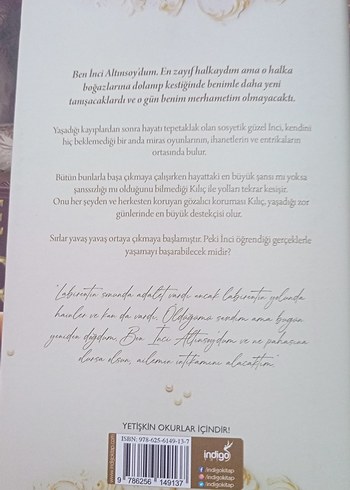 Ben İnci Altınsoy'dum. En zayıf halkaydım ama o halka
boğazlarına dolanıp kestiğinde benimle daha yeni
tanışacaklardı ve o gün benim merhametim olmayacaktı.
Yaşadığı kayıplardan sonra hayatı tepetaklak olan sosyetik güzel İnci, kendini
hiç beklemediği bir anda miras oyunlarının, ihanetlerin ve entrikaların
ortasında bulur.
Bütün bunlarla başa çıkmaya çalışırken hayattaki en büyük şansı mı yoksa
şanssızlığı mı olduğunu bilmediği Kılıç ile yolları tekrar kesişir.
Onu her şeyden ve herkesten koruyan gözalıcı koruması Kılıç, yaşadığı zor
günlerinde en büyük destekçisi olur.
Sırlar yavaş yavaş ortaya çıkmaya başlamıştır. Peki İnci öğrendiği gerçeklerle
yaşamayı başarabilecek midir?
'Labirentin sonunda adalet vardı ancak labirentin yolunda
hainler ve kan da vardı. Öldüğümü sandım ama bugün
yeniden doğdum. Ben İnci Altınsoy'dum ve ne pahasına
olursa olsun, ailemin intikamını alacaktım.'
YETİŞKİN OKURLAR İÇİNDİR!
ISBN: 978-625-6149-13-7
9 786256 149137
indigo
/indigokitap
/indigokitap
/indigokitap